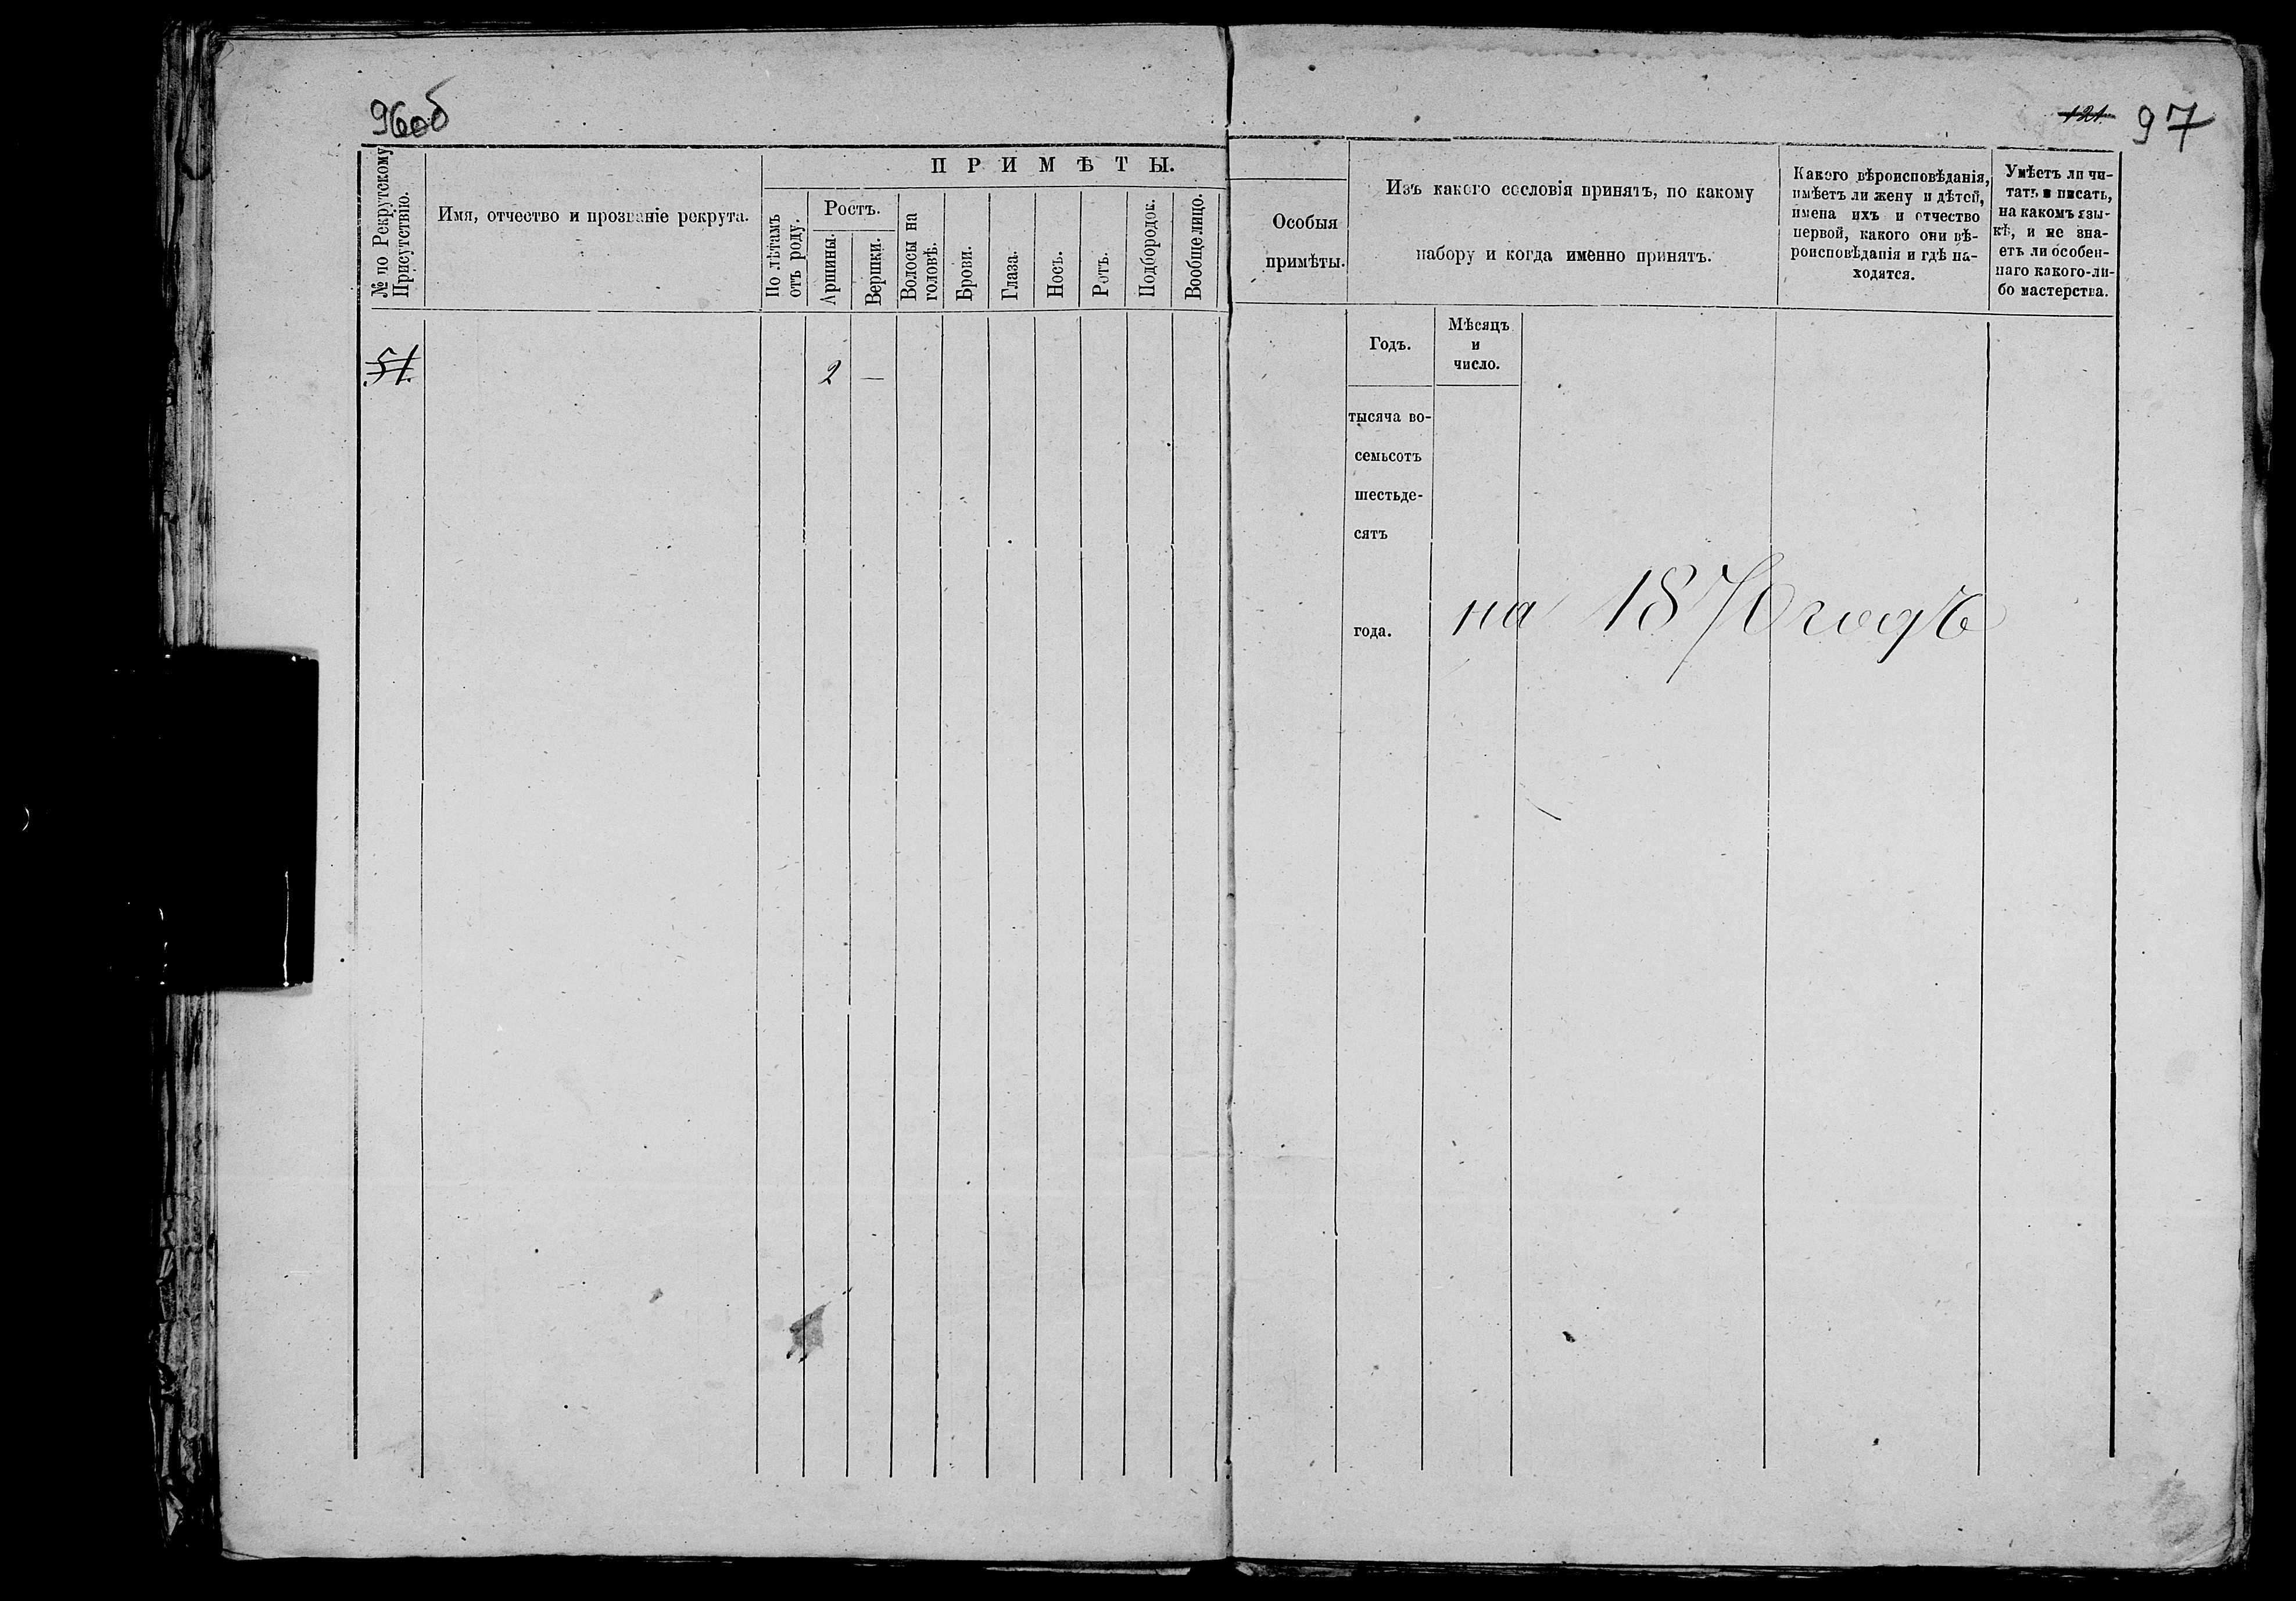 96об
121. 97
№ по Рекрутскому
Присутствію.
Имя, отчество и прозваніе рекрута.
ПРИМѢТЫ.
По лѣтамъ
отъ роду.
Ростъ.
Аршины.
Вершки.
Волосы на
головѣ.
Брови.
Глаза.
Носъ.
Ротъ.
Подбородок.
Вообще лицо.
Особыя
примѣты.
Изъ какого сословія принятъ, по какому
набору и когда именно принятъ.
Какого вѣроисповѣданія,
имѣетъ ли жену и дѣтей,
имена ихъ и отчество
первой, какого они вѣ-
роисповѣданія и гдѣ на-
ходятся.
Умѣетъ ли чи-
тать и писать,
на какомъ язы-
кѣ, и не зна-
етъ ли особен-
наго какого-ли-
бо мастерства.
51.
2 —
Годъ.
Мѣсяцъ
и
число.
тысяча во-
семьсотъ
шестьде-
сятъ
года.
на 1870 годъ